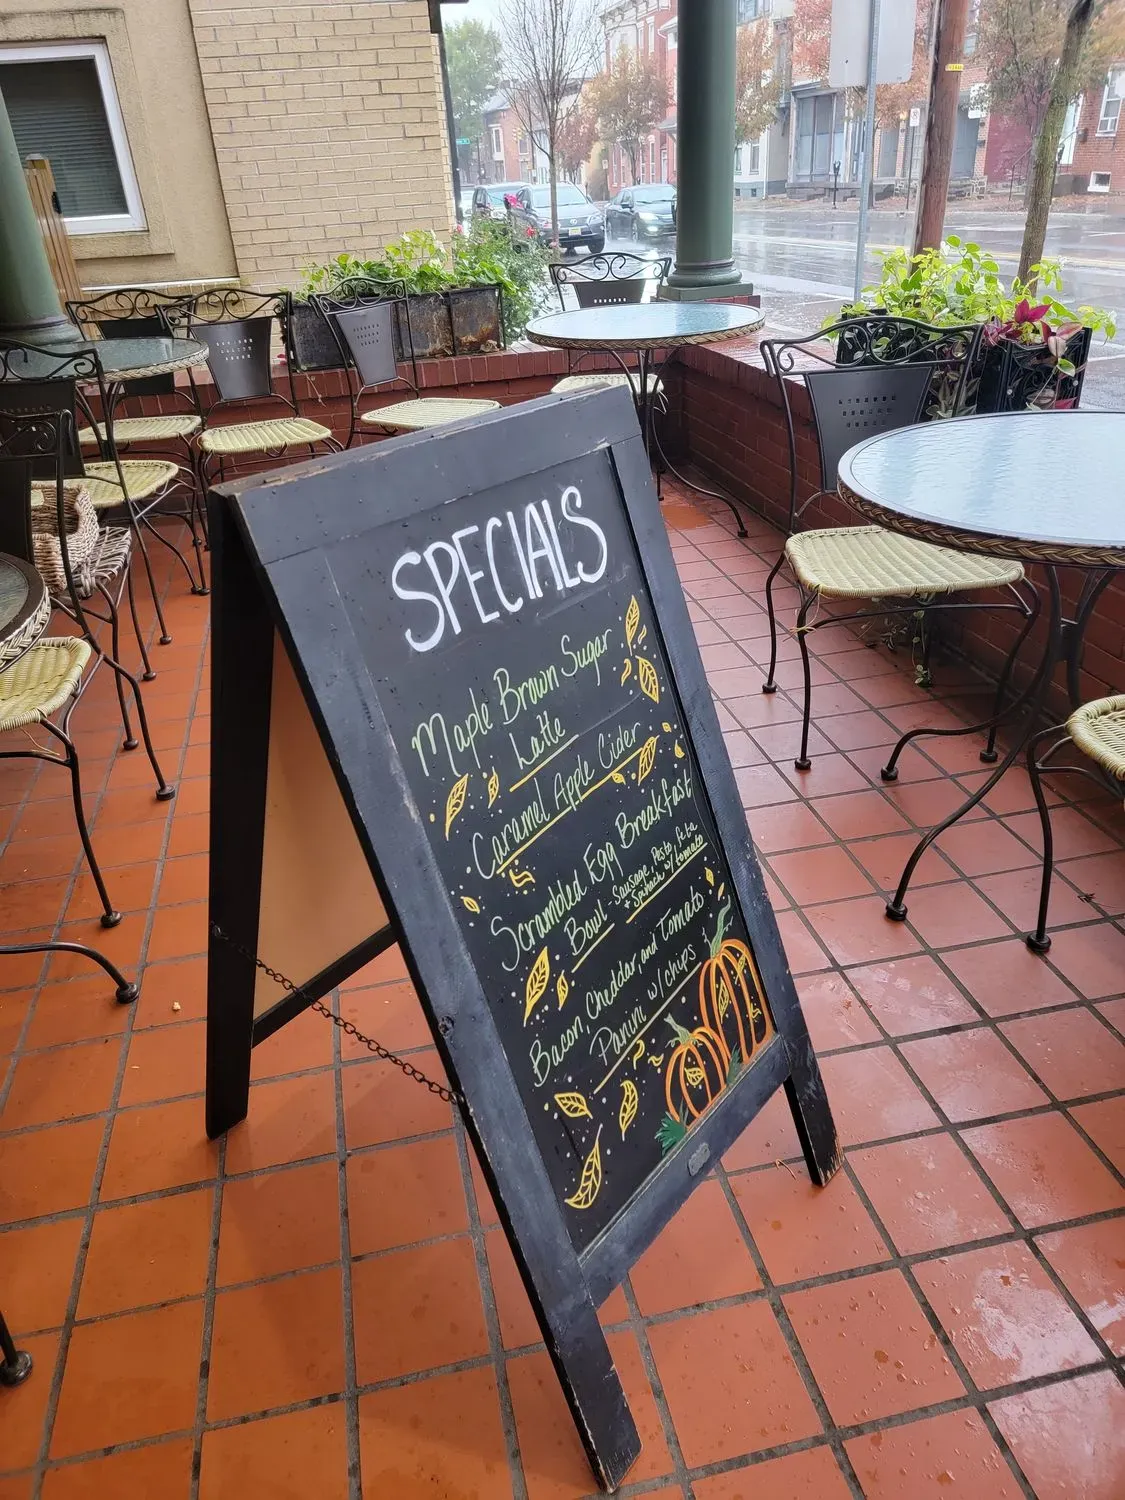 SPECIALS
Maple Brown Sugar
Latte
Caramel Apple Cider
Scrambled Egg Breakfast
Bowl - Sausage, Pesto, feta
+ Spinach w/ tomato
Bacon, Cheddar, and Tomato
Panini w/ chips